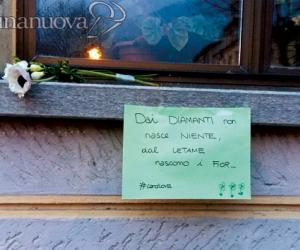 inanuova
Dai DIAMANTI non
nasce NIENTE,
dal LETAME
nascono i FIOR...